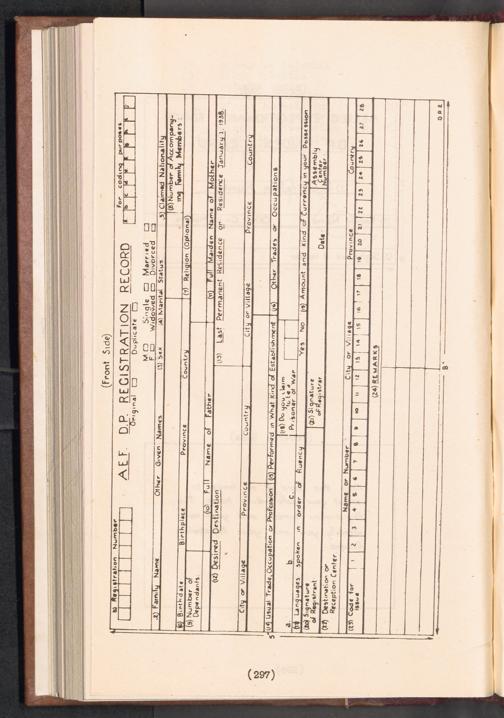 (Front Side)
(1) Registration Number
A.E.F. D.P. REGISTRATION RECORD
For coding purposes
Original Duplicate
M Single Married
F Widowed Divorced
(2) Family Name Other Given Names (3) Sex (4) Marital Status (5) Claimed Nationality
(6) Birthdate Birthplace Province Country (7) Religion (Optional) (8) Number of Accompany-
ing Family Members:
(9) Number of
Dependants
(10) Full Name of Father (11) Full Maiden Name of Mother
(12) Desired Destination (13) Last Permanent Residence or Residence January 1, 1938.
City or Village Province Country City or Village Province Country
(14) Usual Trade, Occupation or Profession (15) Performed in What Kind of Establishment (16) Other Trades or Occupations
a. b. c.
(17) Languages Spoken in order of Fluency
(18) Do you claim
to be a
Prisoner of War
Yes No
(19) Amount and Kind of Currency in your Possession
(20) Signature
of Registrant
(21) Signature
of Registrar
Date Assembly
Center
Number
(22) Destination or
Reception Center
Name or Number City or Village Province Country
(23) Code for
Issue
1 2 3 4 5 6 7 8 9 10 11 12 13 14 15 16 17 18 19 20 21 22 23 24 25 26 27 28
(24) REMARKS
5"
8"
D.P. 2
(297)